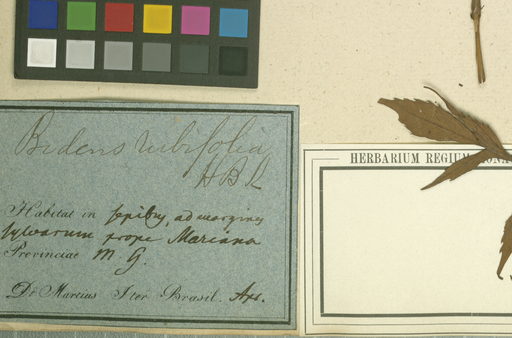 Bidens rubifolia
HBK
Habitat in sepibus, ad margines
sylvarum prope Mariana
Provinciae M. G.
Dr Martius Iter Brasil.
HERBARIUM REGIUM MONA